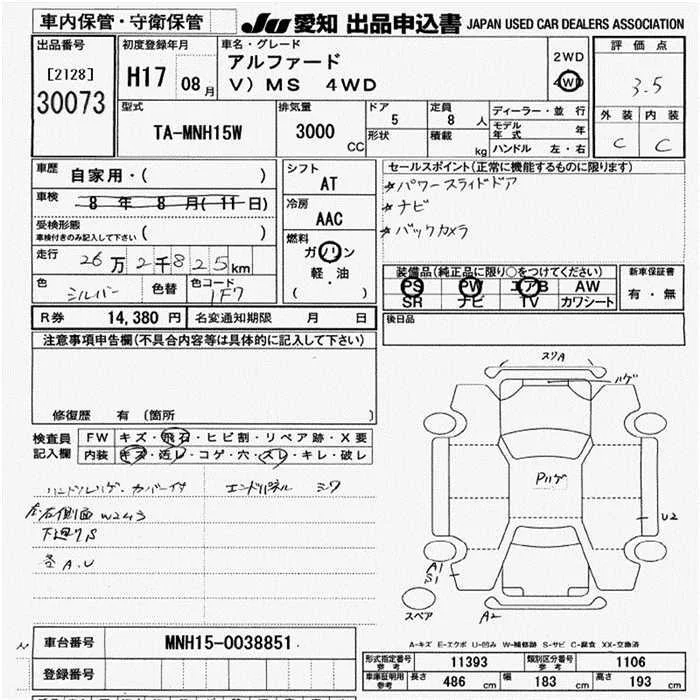 車内保管・守衛保管
JU 愛知 出品申込書 JAPAN USED CAR DEALERS ASSOCIATION
出品番号
[2128]
30073
初度登録年月
H17 08月
車名・グレード
アルファード
V) MS 4WD
2WD
4WD
評価点
3.5
外装 内装
C C
型式
TA-MNH15W
排気量
3000 CC
ドア 5
形状
定員 8 人
積載 kg
ディーラー・並行
モデル年式 年
ハンドル 左・右
車歴 自家用・( )
車検 8年 8月(11日)
受検形態
車検付きのみ記入して下さい ( )
走行 26万2千825km
色 シルバー 色替 色コード 1F7
シフト
AT
冷房
AAC
燃料
ガソリン
軽・油
( )
セールスポイント(正常に機能するものに限ります)
☆パワースライドドア
☆ナビ
☆バックカメラ
装備品(純正品に限り○をつけてください)
PS PW エアB AW
SR ナビ TV カワシート
新車保証書
有・無
後日品
R券 14,380円 名変通知期限 月 日
注意事項申告欄(不具合内容等は具体的に記入して下さい)
修復歴 有 (箇所 )
検査員記入欄
FW キズ・飛石・ヒビ割・リペア跡・X要
内装 キズ・汚レ・コゲ・穴・スレ・キレ・破レ
ハンドルハゲ・カバー付 エンドパネル
左右側面 W2・3
下廻りS
各A.U
スリA
ハゲ
Pハゲ
U2
A1
S1
スペア
A2
A-キズ E-エクボ U-凹み W-補修跡 S-サビ C-腐食 XX-交換済
車台番号 MNH15-0038851
登録番号
形式指定番号 参考 11393 類別区分番号 参考 1106
車庫証明用 参考 長さ 486 cm 幅 183 cm 高さ 193 cm